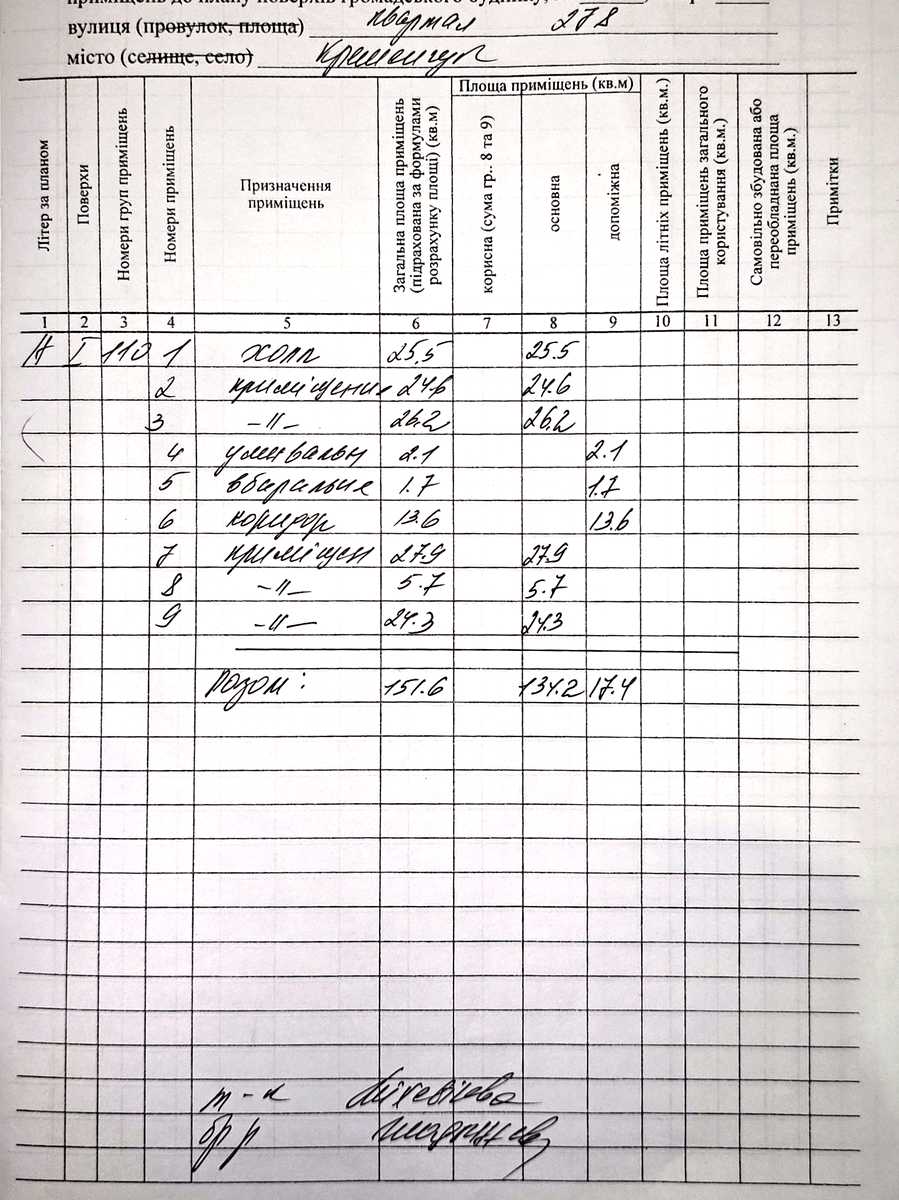 приміщень до плану поверхів громадського будинку,
вулиця (провулок, площа) квартал 278
місто (селище, село) Кременчук
Літер за планом
Поверхи
Номери груп приміщень
Номери приміщень
Призначення приміщень
Загальна площа приміщень (підрахована за формулами розрахунку площі) (кв.м)
Площа приміщень (кв.м)
корисна (сума гр.. 8 та 9)
основна
допоміжна
Площа літніх приміщень (кв.м.)
Площа приміщень загального користування (кв.м.)
Самовільно збудована або переобладнана площа приміщень (кв.м.)
Примітки
1 2 3 4 5 6 7 8 9 10 11 12 13
А I 110 1 холл 25,5 25.5
2 приміщення 24.6 24.6
3 –"– 26.2 26.2
4 умивальн 2.1 2.1
5 вбиральня 1.7 1.7
6 коридор 13.6 13.6
7 приміщен 27.9 27.9
8 –"– 5.7 5.7
9 –"– 24.3 24.3
Разом: 151.6 134.2 17.4
т-к
бр р